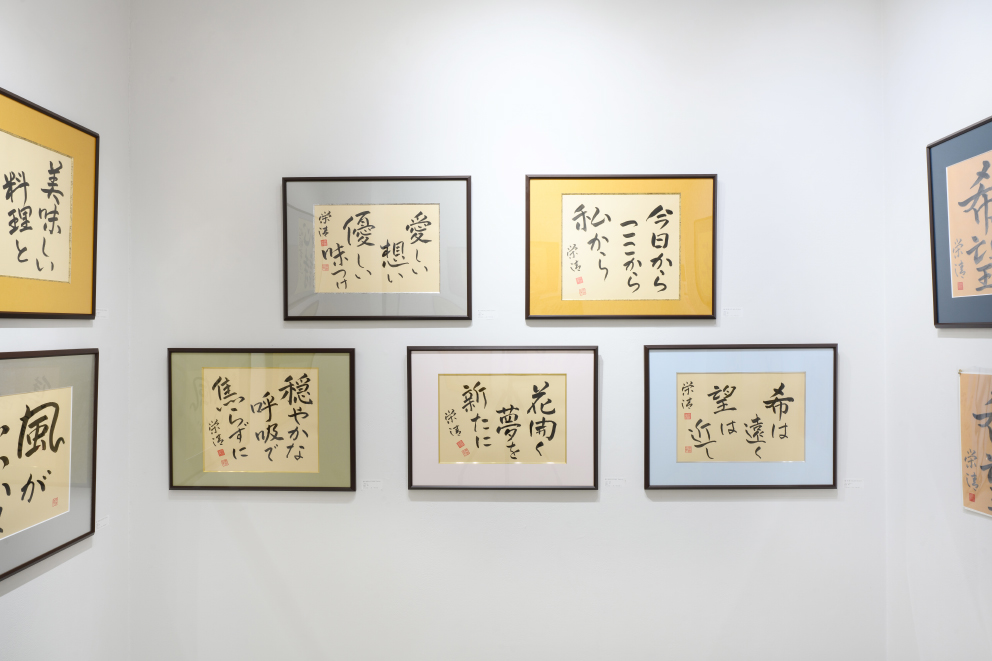 美味しい
料理と
風が
愛しい
想い
優しい
味つけ
栄清
今日から
ここから
私から
栄清
穏やかな
呼吸で
焦らずに
栄清
花開く
夢を
新たに
栄清
希は
遠く
望は
近し
栄清
希望
栄清
栄清